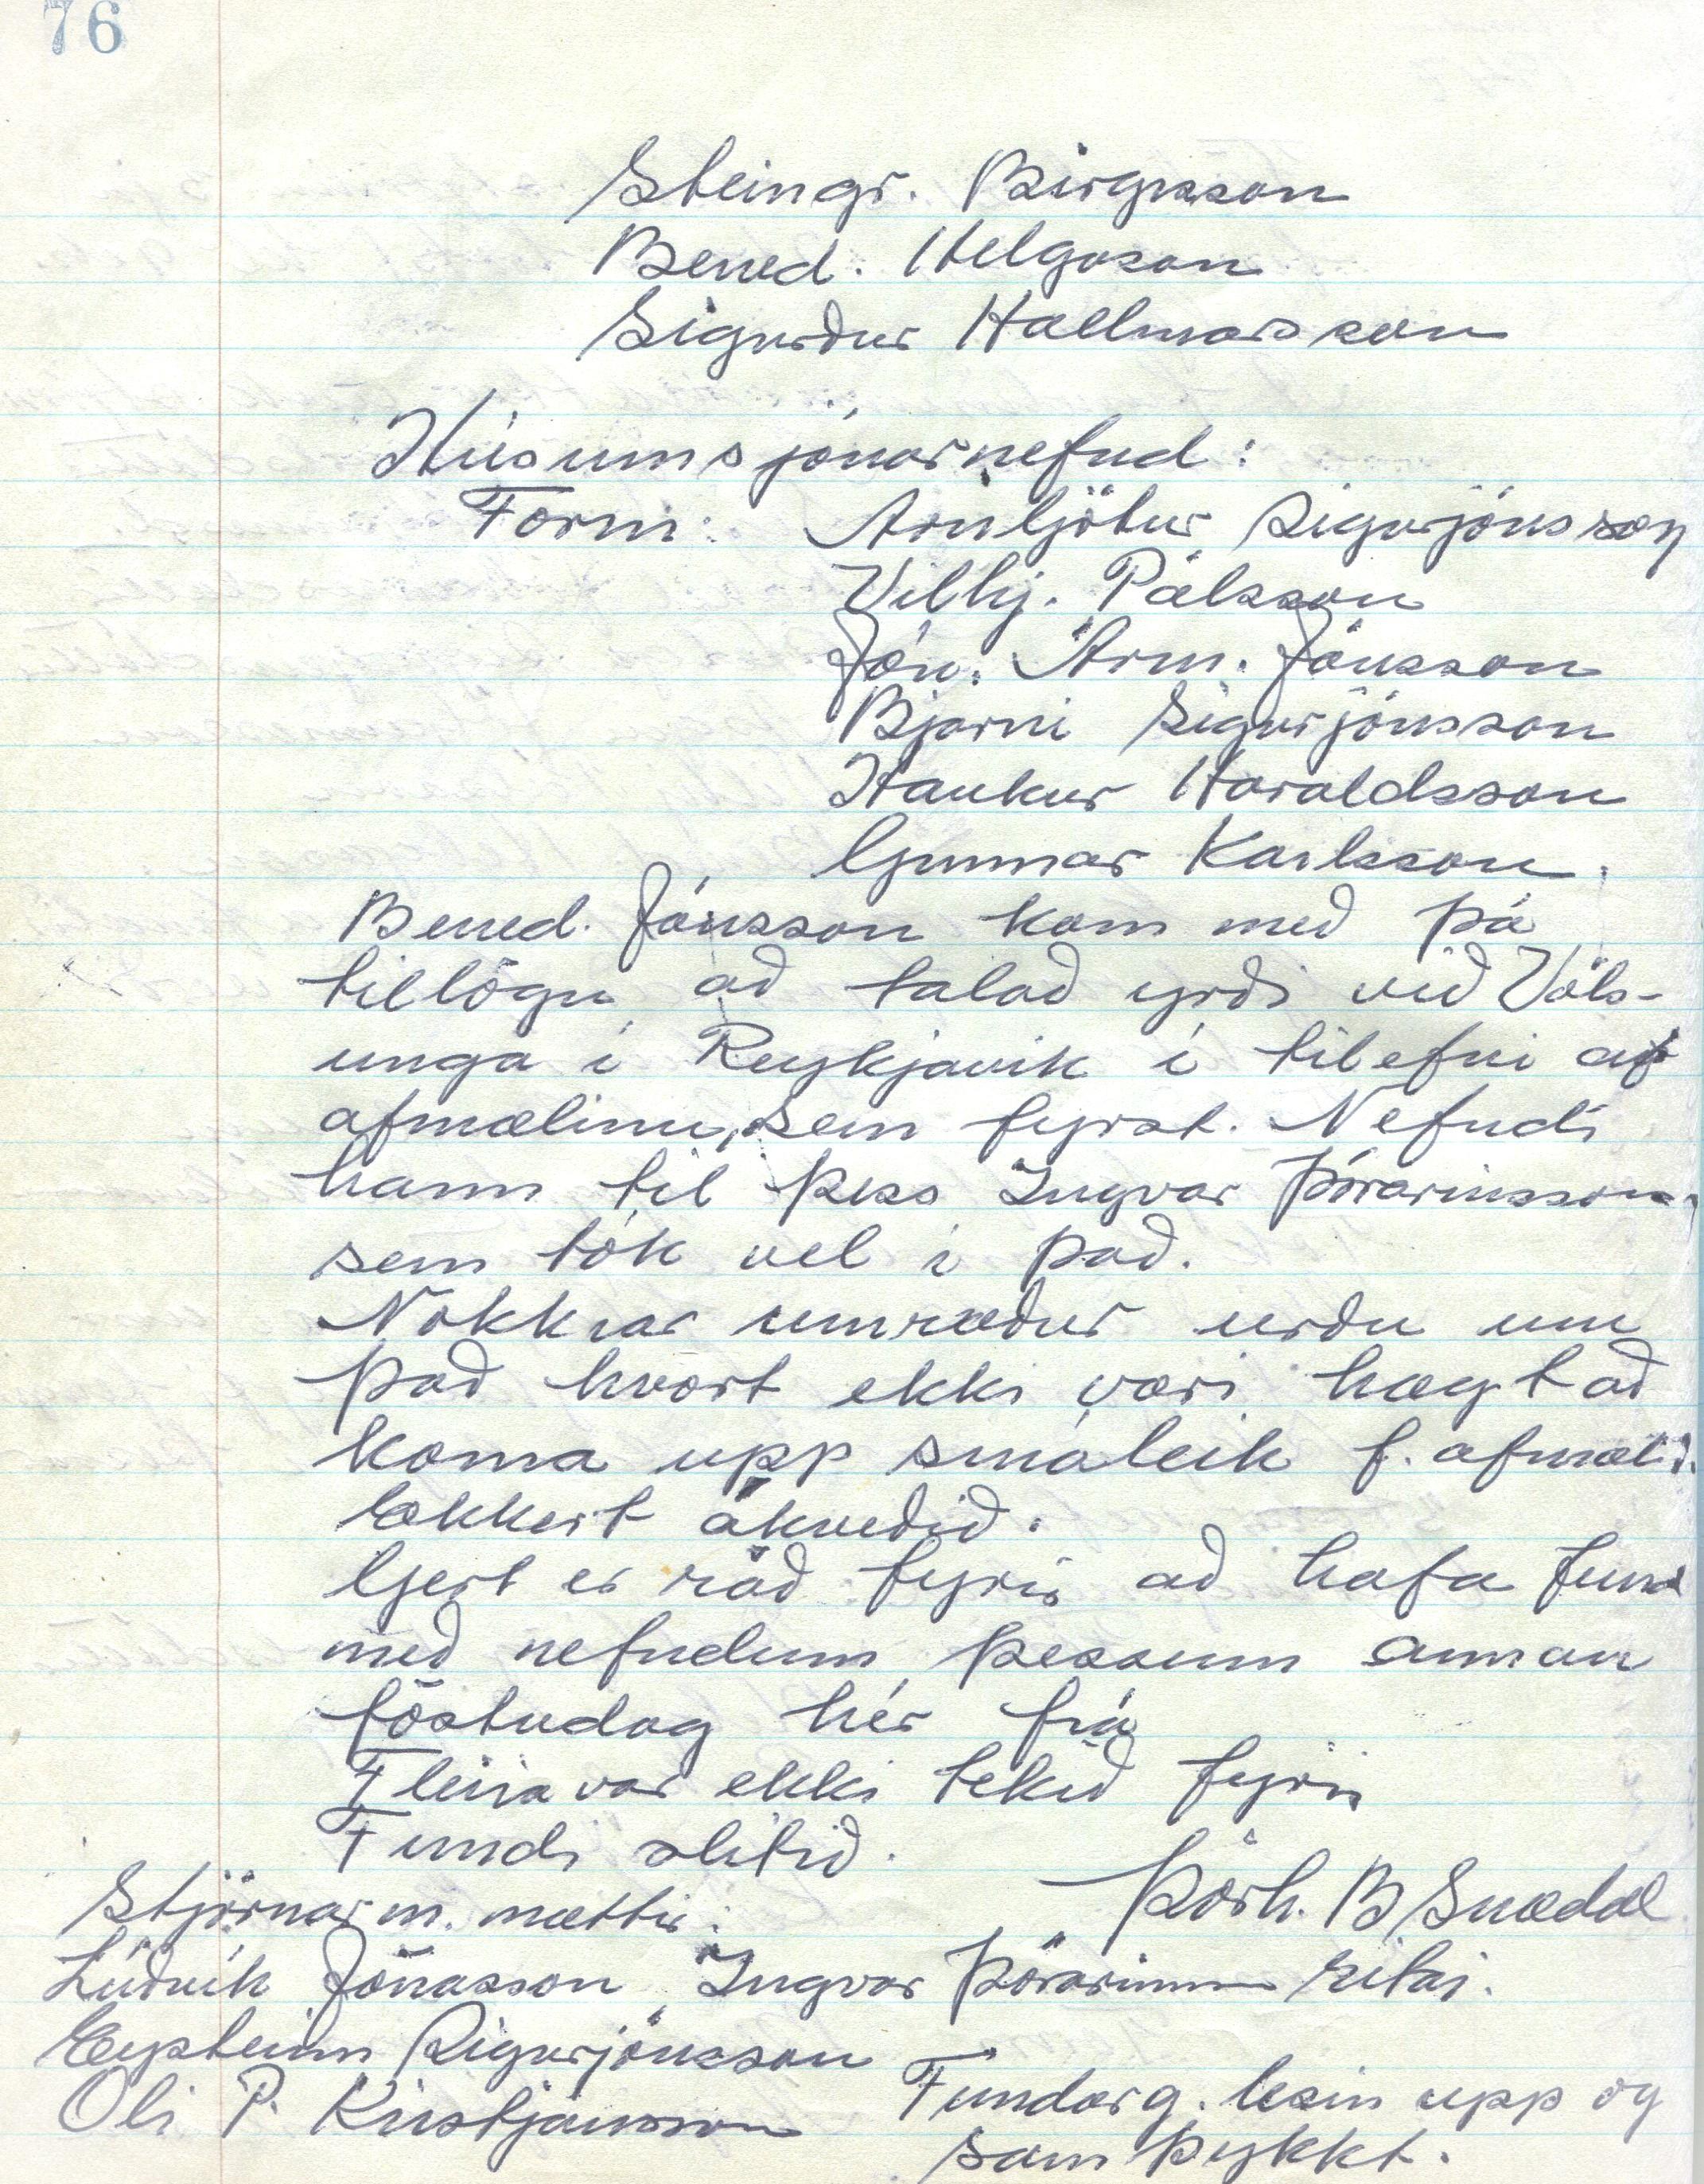 76
Steingr. Birgisson
Bened. Helgason
Sigurður Hallmarsson
Húsumsjónarnefnd:
Form: Arnljótur Sigurjónsson
Vilhj. Pálsson
Jón. Árm. Jónsson
Bjarni Sigurjónsson
Haukur Haraldsson
Gunnar Karlsson.
Bened. Jónsson kom með þá
tillögu að talað yrði við Völs-
unga í Reykjavík í tilefni af
afmælinu, sem fyrst. Nefndi
hann til þess Ingvar Þórarinsson,
sem tók vel í það.
Nokkrar umræður urðu um
það hvort ekki væri hægt að
koma upp smáleik f. afmælið.
Ekkert ákveðið.
Gert er ráð fyrir að hafa fund
með nefndum þessum annan
föstudag hér frá
Fleira var ekki tekið fyrir
Fundi slitið.
Þórh. B Snædal
ritari.
Stjórnar m. mættir:
Lúðvík Jónasson, Ingvar Þórarinsson
Eysteinn Sigurjónsson
Óli P. Kristjánsson
Fundarg. lesin upp og
samþykkt.